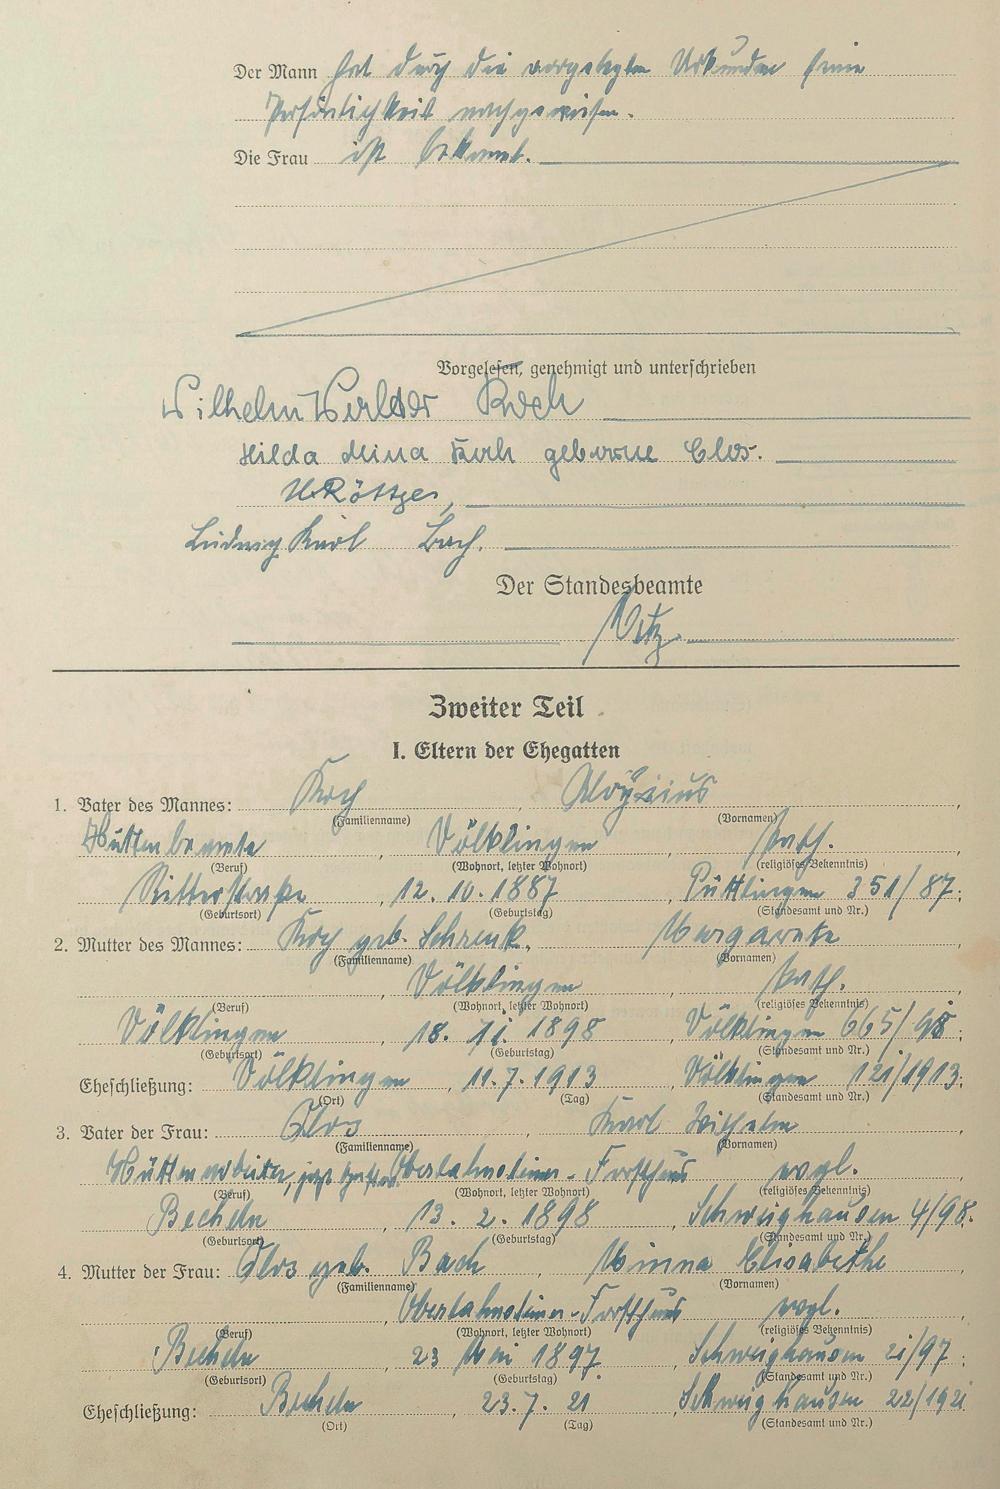 Der Mann hat durch die vorgelegten Urkunden seine
Persönlichkeit nachgewiesen.
Die Frau ist bekannt.
Vorgelesen, genehmigt und unterschrieben
Wilhelm Walter Koch
Hilda Mina Koch geborene Clos.
W. Röttger
Ludwig Karl Bach.
Der Standesbeamte
Zweiter Teil
I. Eltern der Ehegatten
1. Vater des Mannes: Koch, Aloysius,
(Familienname) (Vornamen)
Hüttenbeamte, Völklingen, kath.
(Beruf) (Wohnort, letzter Wohnort) (religiöses Bekenntnis)
Ritterstraße, 12.10.1887, Püttlingen 351/87;
(Geburtsort) (Geburtstag) (Standesamt und Nr.)
2. Mutter des Mannes: Koch geb. Schrenk, Margarete,
(Familienname) (Vornamen)
, Völklingen, kath.
(Beruf) (Wohnort, letzter Wohnort) (religiöses Bekenntnis)
Völklingen, 18. 11. 1898, Völklingen 665/98;
(Geburtsort) (Geburtstag) (Standesamt und Nr.)
Eheschließung: Völklingen, 11.7.1913, Völklingen 121/1913;
(Ort) (Tag) (Standesamt und Nr.)
3. Vater der Frau: Clos, Karl Wilhelm,
(Familienname) (Vornamen)
Hüttenarbeiter, jetzt Oberlahnsteiner-Forsthaus evgl.
(Beruf) (Wohnort, letzter Wohnort) (religiöses Bekenntnis)
Becheln, 13. 2. 1898, Schweighausen 4/98.
(Geburtsort) (Geburtstag) (Standesamt und Nr.)
4. Mutter der Frau: Clos geb. Bach, Minna Elisabethe,
(Familienname) (Vornamen)
, Oberlahnsteiner-Forsthaus, evgl.
(Beruf) (Wohnort, letzter Wohnort) (religiöses Bekenntnis)
Becheln, 23 Mai 1897, Schweighausen 21/97;
(Geburtsort) (Geburtstag) (Standesamt und Nr.)
Eheschließung: Becheln, 23.7.21, Schweighausen 22/1921
(Ort) (Tag) (Standesamt und Nr.)